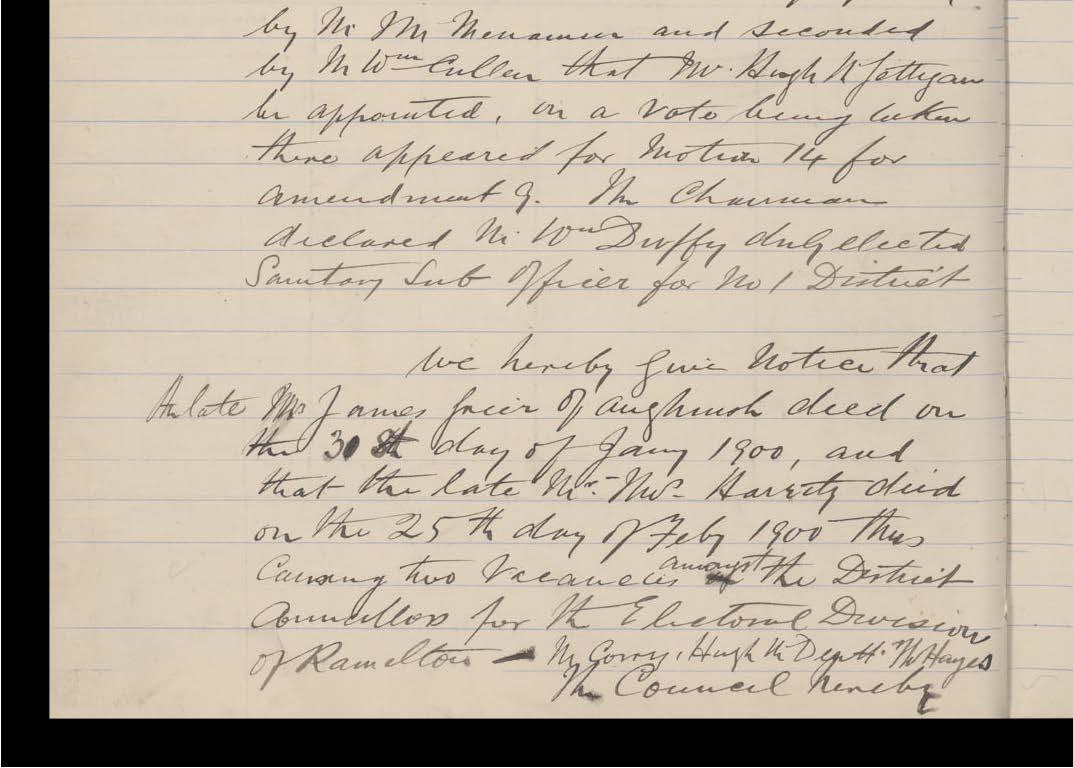 by Mr McMenamin and seconded
by Mr Wm Cullen that Mr. Hugh McGettigan
be appointed, on a vote being taken
there appeared for Motion 14 for
amendment 9. The Chairman
declared Mr Wm Duffy duly elected
Sanitary Sub Officer for No 1 District
We hereby give Notice that
the late Mr James Grier of died on
the 30th day of Jany 1900, and
that the late Mr. Haggerty died
on the 25th day of Feby 1900 thus
Causing two Vacancies amongst the District
Councillors for the Electoral Division
of Ramelton — Hugh Thos Hayes
The Council hereby